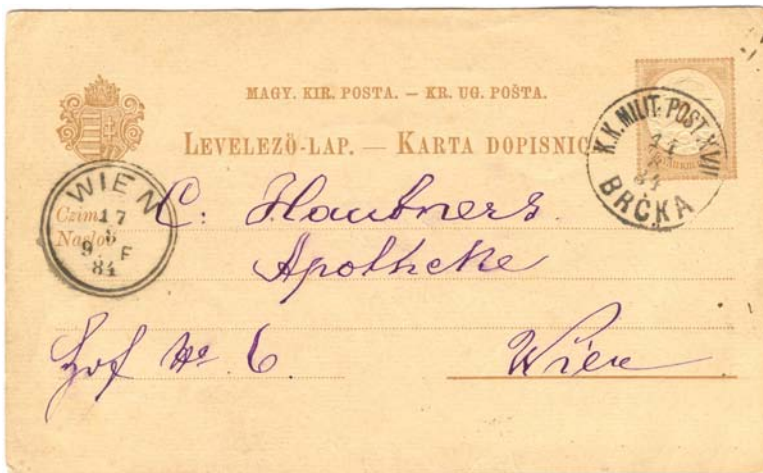 MAGY. KIR. POSTA. – KR. UG. POŠTA.
LEVELEZŐ-LAP. — KARTA DOPISNIC
K.K. MILIT. POST XVII
84
BRČKA
WIEN
17
9. F
84
Czim
Naslov
C: Haubners
Apotheke
Hof No 6. Wien